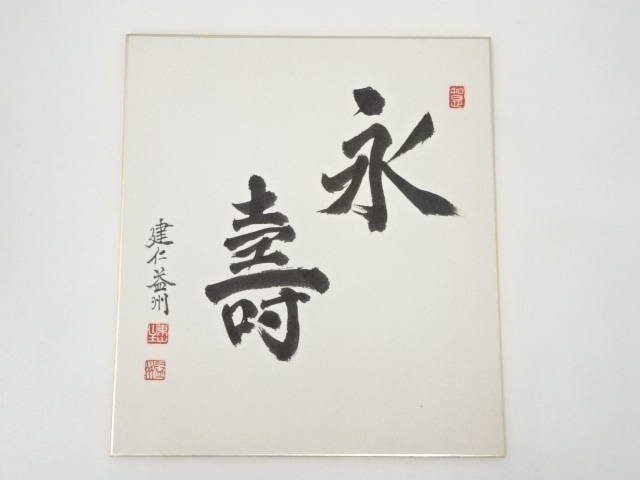 永
壽
建仁益州